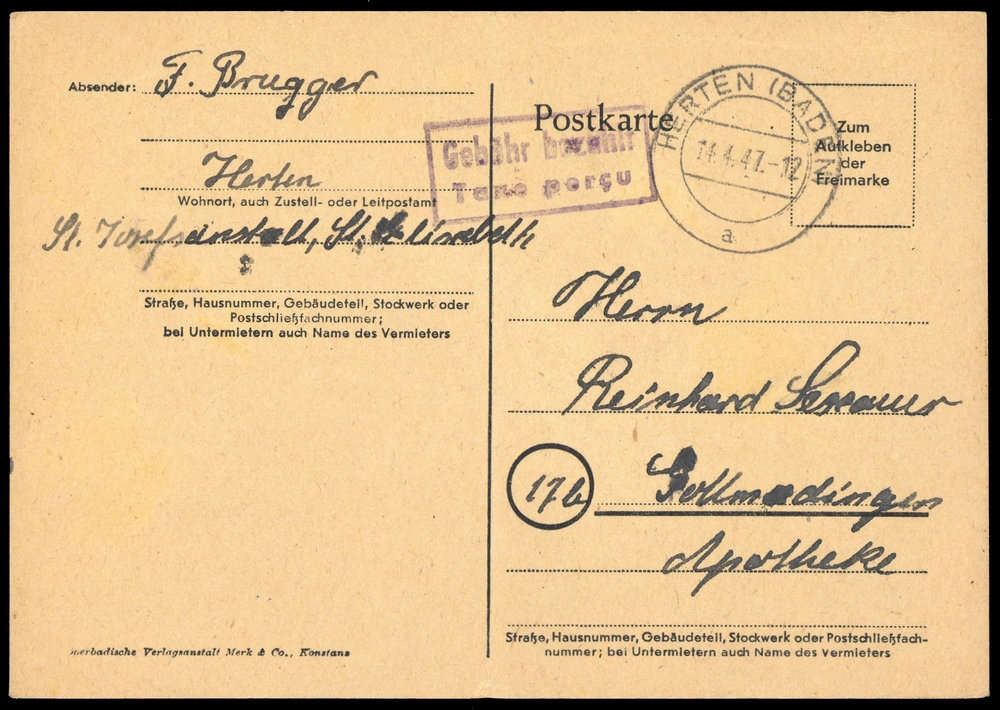 Absender: F. Brugger
Herten
Wohnort, auch Zustell- oder Leitpostamt
St. Josefsanstalt, St. Elisabeth
Straße, Hausnummer, Gebäudeteil, Stockwerk oder
Postschließfachnummer;
bei Untermietern auch Name des Vermieters
merbadische Verlagsanstalt Merk & Co., Konstanz
Postkarte
Gebühr bezahlt
Taxe perçu
HERTEN (BADEN)
14.4.47.-12
a
Zum
Aufkleben
der
Freimarke
Herrn
Reinhard
17b Gottmadingen
Apotheke
Straße, Hausnummer, Gebäudeteil, Stockwerk oder Postschließfach-
nummer; bei Untermietern auch Name des Vermieters